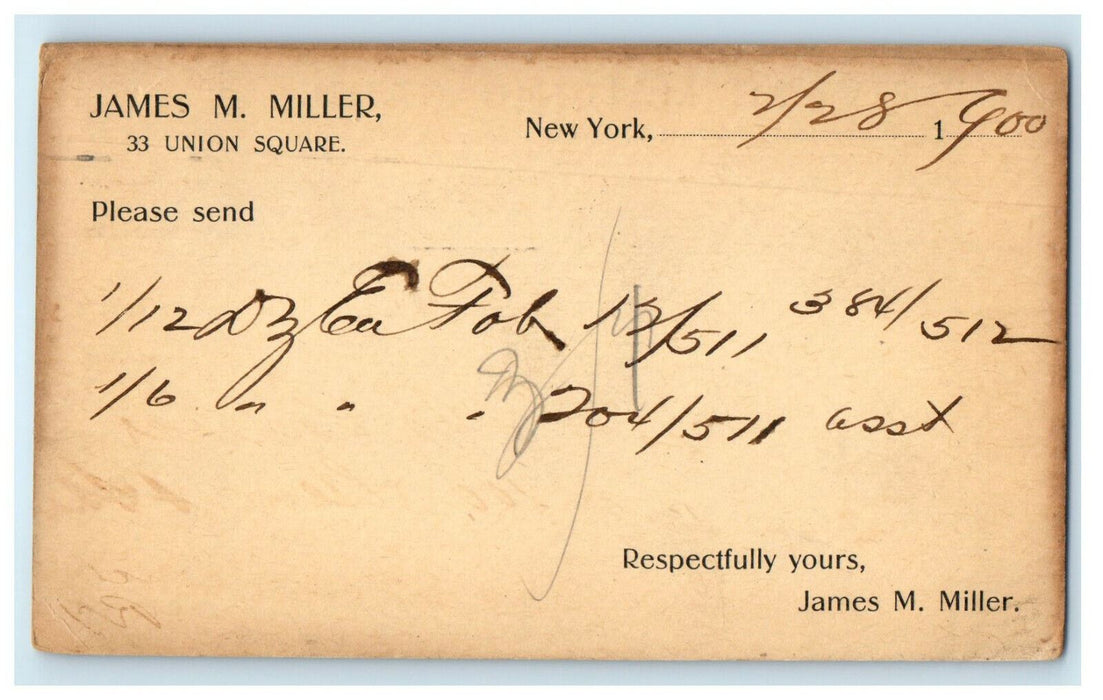 JAMES M. MILLER,
33 UNION SQUARE.
New York, 2/28 1900
Please send
1/12 Dz Ea Fob 13/511, 384/512
1/6 " " " 204/511 asst
Respectfully yours,
James M. Miller.